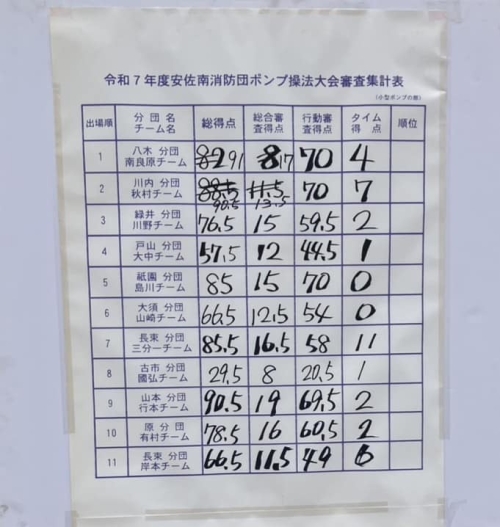 令和7年度安佐南消防団ポンプ操法大会審査集計表
(小型ポンプの部)
出場順 分団名 チーム名 総得点 総合審査得点 行動審査得点 タイム得点 順位
1 八木 分団 南良原チーム 82 91 8 17 70 4
2 川内 分団 秋村チーム 88.5 90.5 11.5 13.5 70 7
3 緑井 分団 川野チーム 76.5 15 59.5 2
4 戸山 分団 大中チーム 57.5 12 44.5 1
5 祗園 分団 島川チーム 85 15 70 0
6 大須 分団 山崎チーム 66.5 12.5 54 0
7 長束 分団 三分一チーム 85.5 16.5 58 11
8 古市 分団 國弘チーム 29.5 8 20.5 1
9 山本 分団 行本チーム 90.5 19 69.5 2
10 原 分団 有村チーム 78.5 16 60.5 2
11 長束 分団 岸本チーム 66.5 11.5 49 6